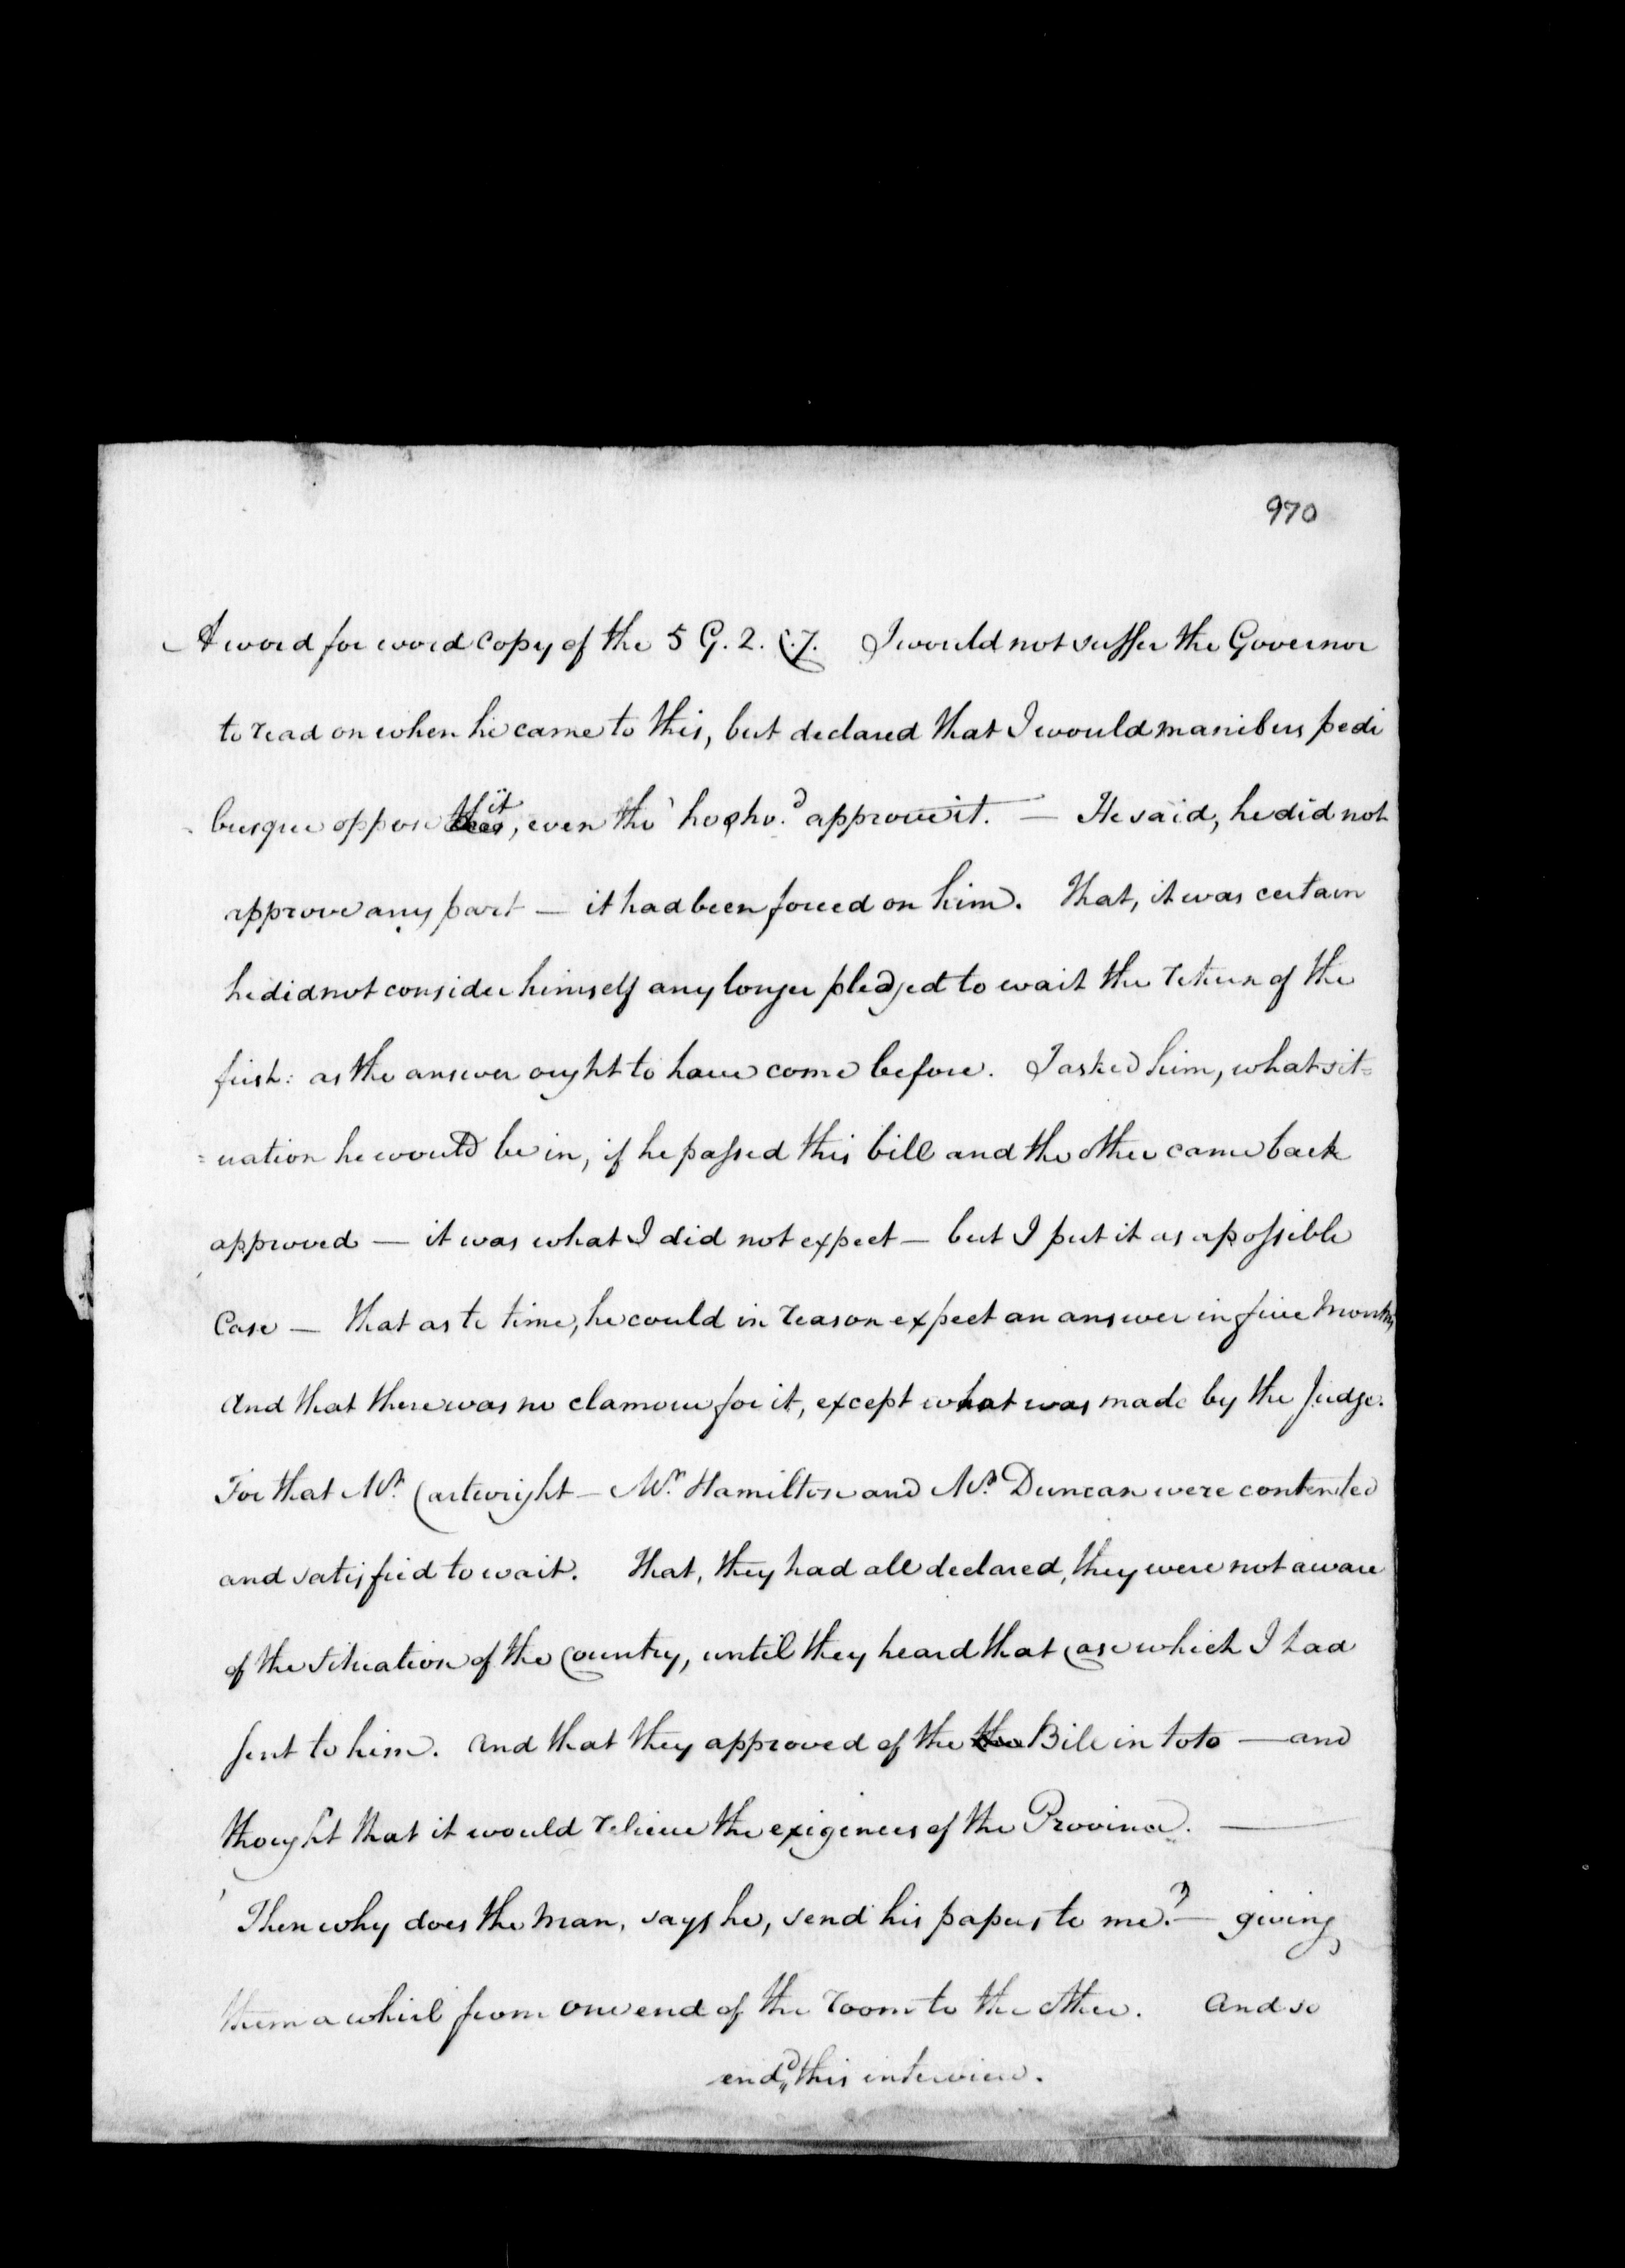 970
A word for word copy of the 5 G. 2. C. 7. I would not suffer the Governor
to read on when he came to this, but declared that I would manibus pedi
busque oppose it, even tho' he sho.d approve it. — He said, he did not
approve any part — it had been forced on him. That, it was certain
he did not consider himself any longer pledged to wait the return of the
first: as the answer ought to have come before. I asked him, what sit=
=uation he would be in, if he passed this bill and the other came back
approved — it was what I did not expect — but I put it as a possible
Case — that as to time, he could in reason expect an answer in five months
And that there was no clamour for it, except what was made by the Judge.
For that Mr. Cartwright — Mr. Hamilton and Mr. Duncan were contented
and satisfied to wait. That, they had all declared, they were not aware
of the situation of the Country, until they heard that case which I had
sent to him. And that they approved of the Bill in toto — and
thought that it would relieve the exigences of the Province. —
Then why does the man, says he, send his papers to me? — giving
them a whirl from one end of the room to the other. And so
end,d this interview.